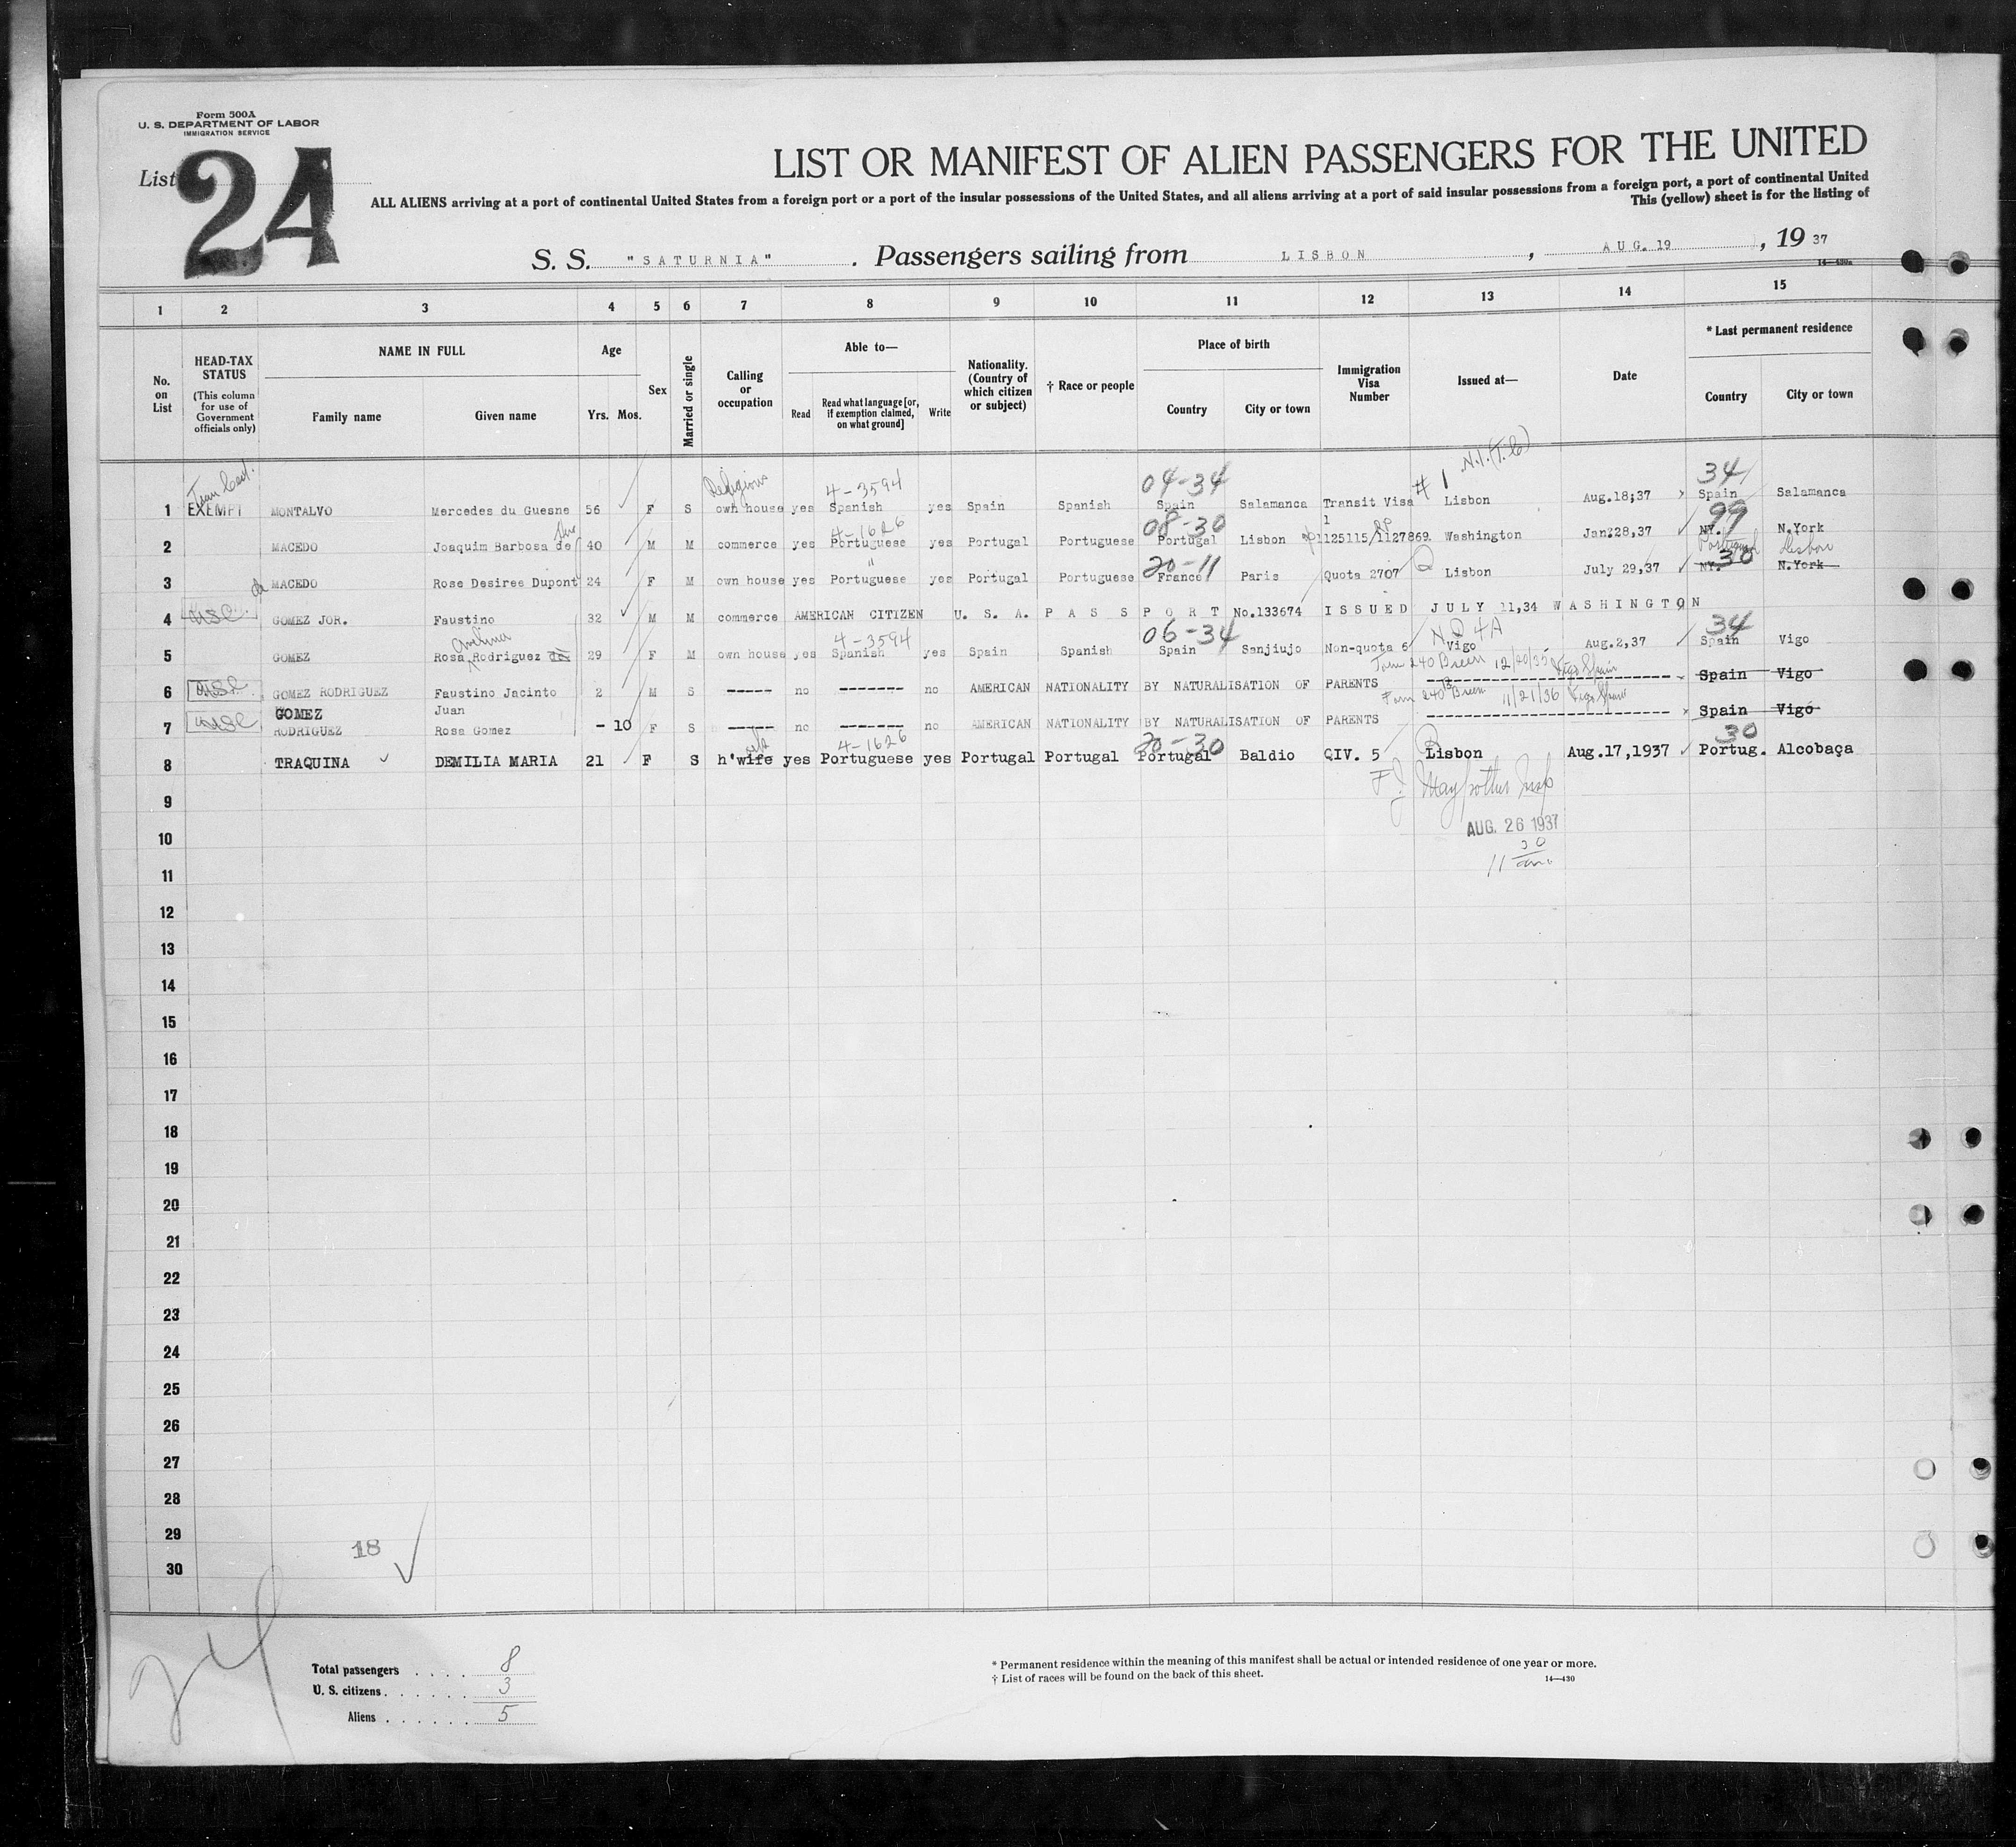 Form 500A
U. S. DEPARTMENT OF LABOR
IMMIGRATION SERVICE
List 24
LIST OR MANIFEST OF ALIEN PASSENGERS FOR THE UNITED
ALL ALIENS arriving at a port of continental United States from a foreign port or a port of the insular possessions of the United States, and all aliens arriving at a port of said insular possessions from a foreign port, a port of continental United
This (yellow) sheet is for the listing of
S. S. "SATURNIA" . Passengers sailing from LISBON , AUG. 19 , 19 37
14—430a
1 2 3 4 5 6 7 8 9 10 11 12 13 14 15
No. on List
HEAD-TAX STATUS
(This column for use of Government officials only)
NAME IN FULL
Family name Given name
Age
Yrs. Mos.
Sex
Married or single
Calling or occupation
Able to—
Read
Read what language [or, if exemption claimed, on what ground]
Write
Nationality. (Country of which citizen or subject)
† Race or people
Place of birth
Country City or town
Immigration Visa Number
Issued at—
Date
* Last permanent residence
Country City or town
Religious 4-3594 04-34 #1 N.I.(T.C) 34
1 EXEMPT MONTALVO Mercedes du Guesne 56 F S own house yes Spanish yes Spain Spanish Spain Salamanca Transit Visa Lisbon Aug.18;37 Spain Salamanca
4-1626 08-30 1 RP 99
2 MACEDO Joaquim Barbosa de 40 M M commerce yes Portuguese yes Portugal Portuguese Portugal Lisbon 1125115/1127869. Washington Jan:28,37 NY. N.York
" 20-11 Q Portugal 30 Lisbon
3 da MACEDO Rose Desires Dupont 24 F M own house yes Portuguese yes Portugal Portuguese France Paris Quota 2707 Lisbon July 29,37 NY. N.York
4 USC GOMEZ JOR. Faustino 32 M M commerce AMERICAN CITIZEN U. S. A. PASSPORT No.133674 ISSUED JULY 11,34 WASHINGTON
Avelina 4-3594 06-34 NQ4A 34
5 GOMEZ Rosa Rodriguez de 29 F M own house yes Spanish yes Spain Spanish Spain Sanjiujo Non-quota 6 Vigo Aug.2,37 Spain Vigo
Form 240 Breen 12/20/35 Vigo Spain
6 USC GOMEZ RODRIGUEZ Faustino Jacinto 2 M S ------ no -------- no AMERICAN NATIONALITY BY NATURALISATION OF PARENTS Spain Vigo
GOMEZ Juan Form 240 Breen 11/21/36 Vigo Spain
7 USC RODRIGUEZ Rosa Gomez - 10 F S ------ no -------- no AMERICAN NATIONALITY BY NATURALISATION OF PARENTS Spain Vigo
4-1626 20-30 Q 30
8 TRAQUINA DEMILIA MARIA 21 F S h'wife yes Portuguese yes Portugal Portugal Portugal Baldio QIV. 5 Lisbon Aug.17,1937 Portug. Alcobaça
9
10 AUG. 26 1937
11 11 30 am
12
13
14
15
16
17
18
19
20
21
22
23
24
25
26
27
28
29 18
30
24
Total passengers . . . . 8
U. S. citizens . . . . . . 3
Aliens . . . . . . 5
* Permanent residence within the meaning of this manifest shall be actual or intended residence of one year or more.
† List of races will be found on the back of this sheet.
14—430